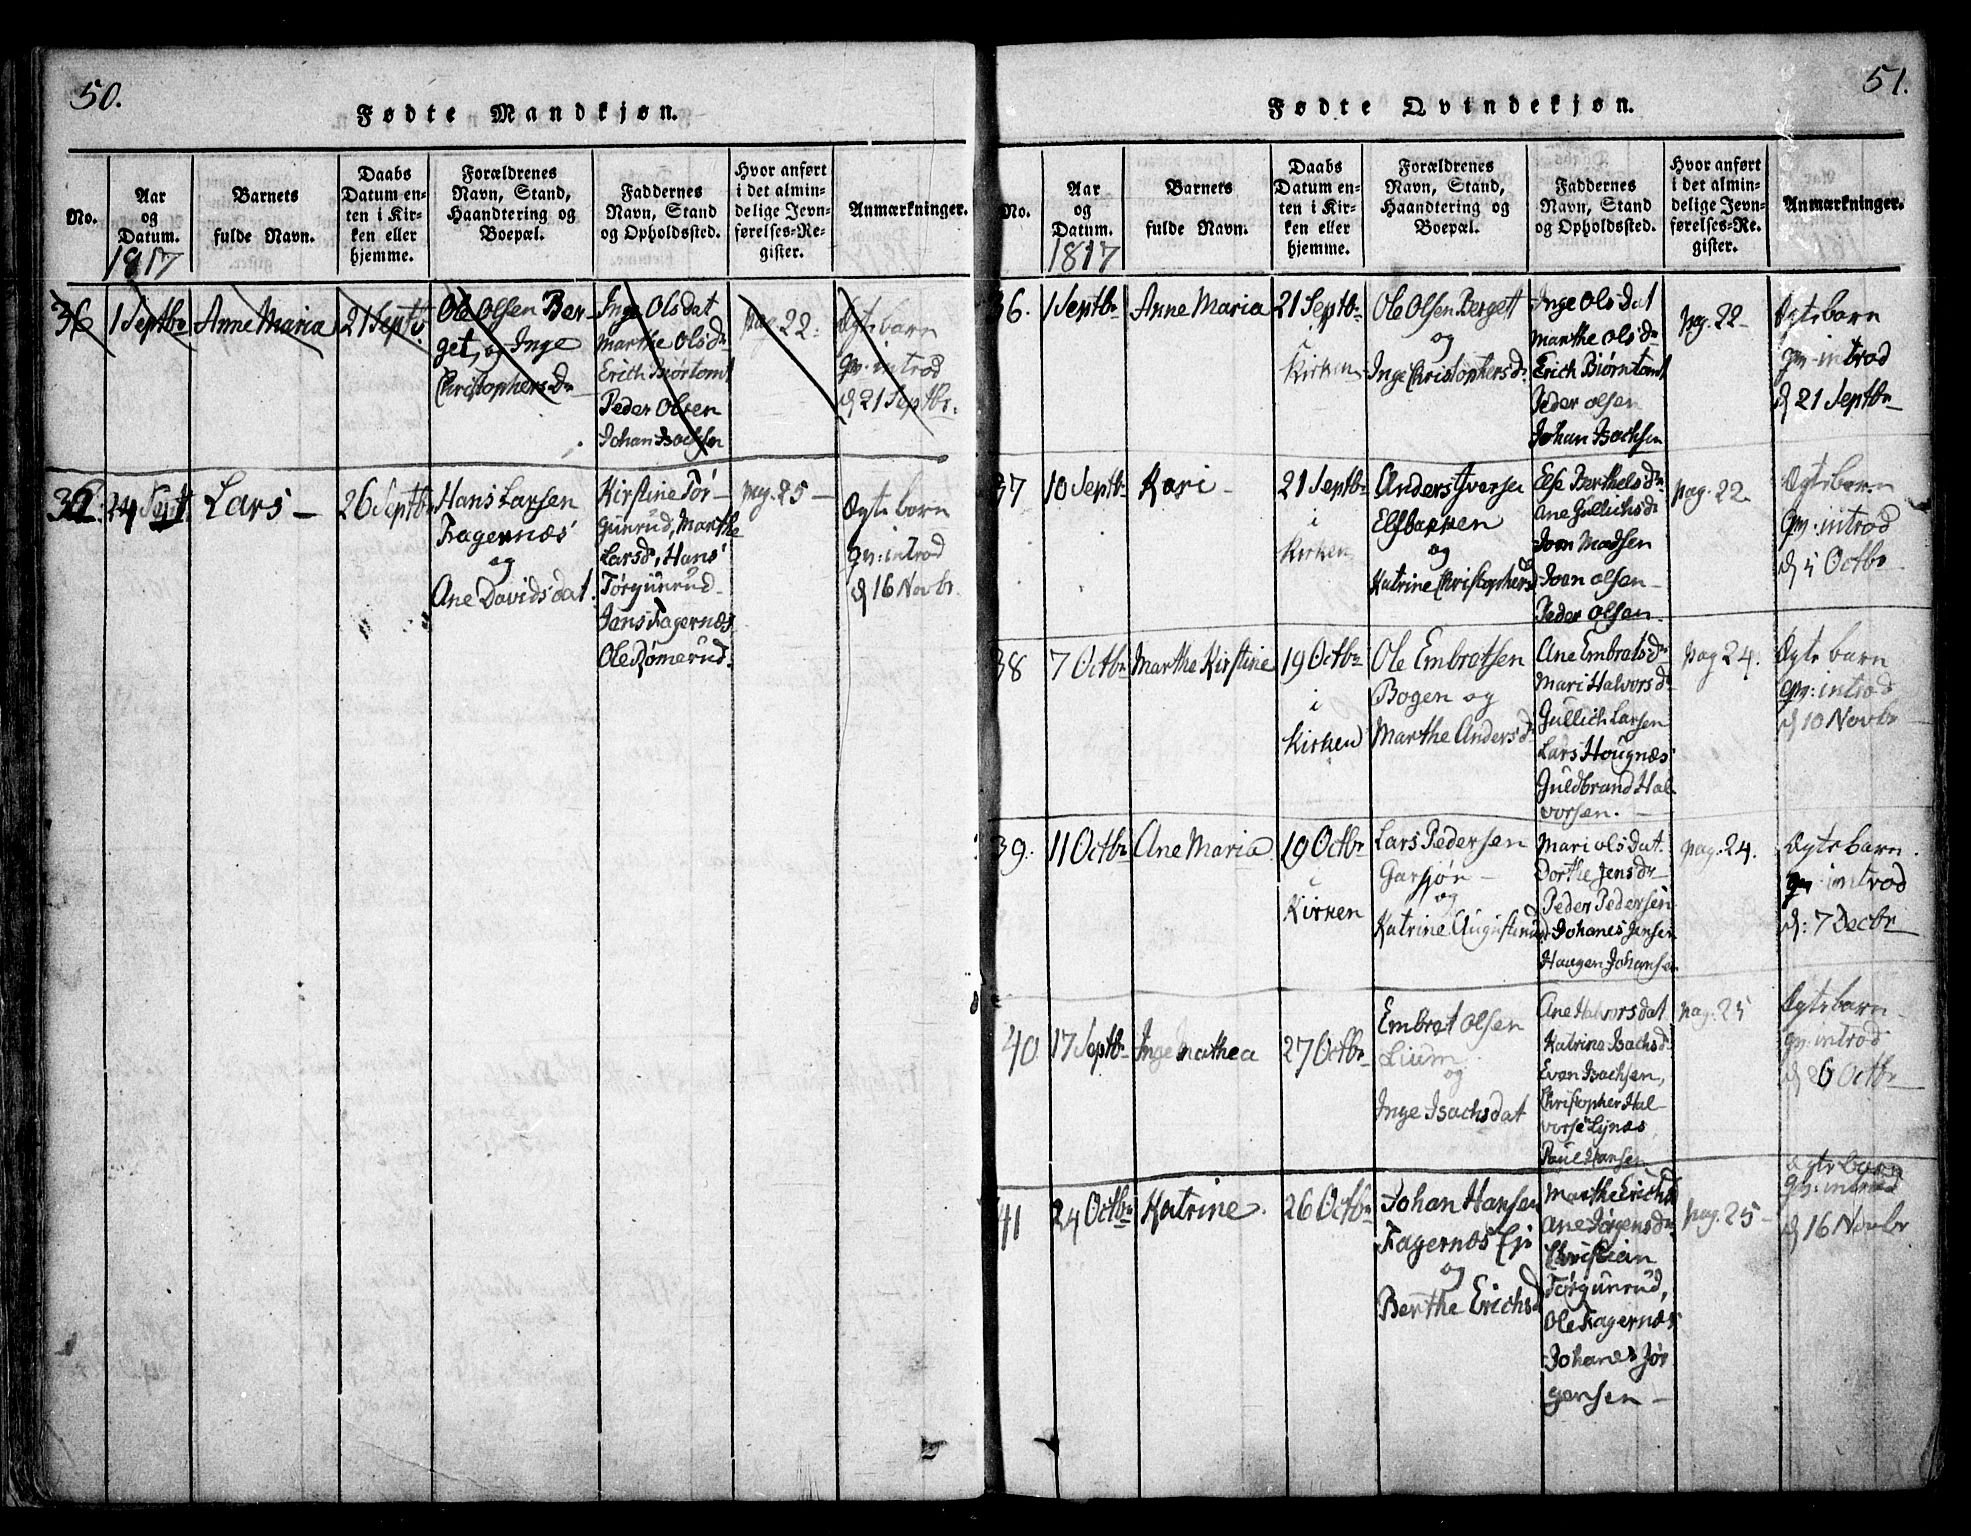 50.
Fødte Mandkjøn.
No.
Aar
og
Datum.
1817
Barnets
fulde Navn.
Daabs
Datum en-
ten i Kir-
ken eller
hjemme.
Forældrenes
Navn, Stand,
Haandtering og
Boepæl.
Faddernes
Navn, Stand
og Opholdssted.
Hvor anført
i det almin-
delige Jevn-
førelses-Re-
gister.
Anmærkninger.
36
1 Septbr
Anne Maria
21 Septbr
Ole Olsen Ber-
get, og Inge
Christophersdr
Inge Olsdat
Marthe Olsdr
Erich Biørtomt
Peder Olsen
Johan Isachsen
pag. 22.
Ægte barn
qv. introd
d 21 Septbr.
24 Sept
Lars
26 Septbr
Hans Larsen
Fagernæs
og
Ane Davidsdat.
Kirstine Tør-
gunrud, Marthe
Larsd, Hans
Tørgunrud
Jans Fagernæs
Ole Rømerud.
pag. 25
Ægte barn
qv: introd
d 16 Novbr.
51.
Fødte Qvindekjøn.
No.
Aar
og
Datum.
1817
Barnets
fulde Navn.
Daabs
Datum en-
ten i Kir-
ken eller
hjemme.
Forældrenes
Navn, Stand,
Haandtering og
Boepæl.
Faddernes
Navn, Stand
og Opholdssted.
Hvor anført
i det almin-
delige Jevn-
førelses-Re-
gister.
Anmærkninger.
36.
1 Septbr
Anne Maria
21 Septbr
i
Kirken
Ole Olsen Berget
og
Inge Christophersd.
Inge Olsdat
Marthe Olsdr
Erich Biørntomt
Peder Olsen
Johan Isachsen
pag. 22
Ægtebarn
qv. introd
d 21 Septbr
37
10 Septbr
Kari
21 Septbr
i
Kirken
Anders Iversen
Elfbakken
og
Katrine Christophersd
Else Berthelsdr
Ane Gullichsdr
Joen Madsen
Joen Olsen
Peder Olsen.
pag. 22
Ægtebarn
qv: introd
d 5 Octbr
38
7 Octbr
Marthe Kirstine
19 Octbr
i
Kirken
Ole Embretsen
Bogen og
Marthe Andersdr
Ane Embretsdr
Mari Halvorsdr
Gullich Larsen
Lars Hougnæs
Guldbrand Hal-
vorsen.
pag. 24.
Ægte barn
qv: introd
d 10 Novbr
39.
11 Octbr
Ane Maria
19 Octbr
i
Kirken
Lars Pedersen
Garsjøn
og
Katrine Augustinusdr
Mari Olsdat.
Dorthe Jensdr
Peder Pedersen
Johanes Jensen
Haagen Johansen
pag. 24.
Ægte barn.
qv: introd
d: 7 Decbr
40
17 Septbr
Inge Mathea
27 Octbr
Embret Olsen
Lium
og
Inge Isachsdat
Ane Halvorsdat
Katrine Isachsd
Even Isachsen,
Christopher Hal-
vorsen Lynæs
Paul Hansen
pag. 25
Ægtebarn
qv: introd
d 26 Octbr
41
24 Octbr
Katrine.
26 Octbr
Johan Hansen
Fagernæs Ej
og
Berthe Erichsd
Marthe Erichsd
Ane Jørgensdr
Christian
Tørgunrud,
Ole Fagernæs
Johanes Jør
gensen
pag. 25
Ægte barn
qv: introd
d 16 Novbr